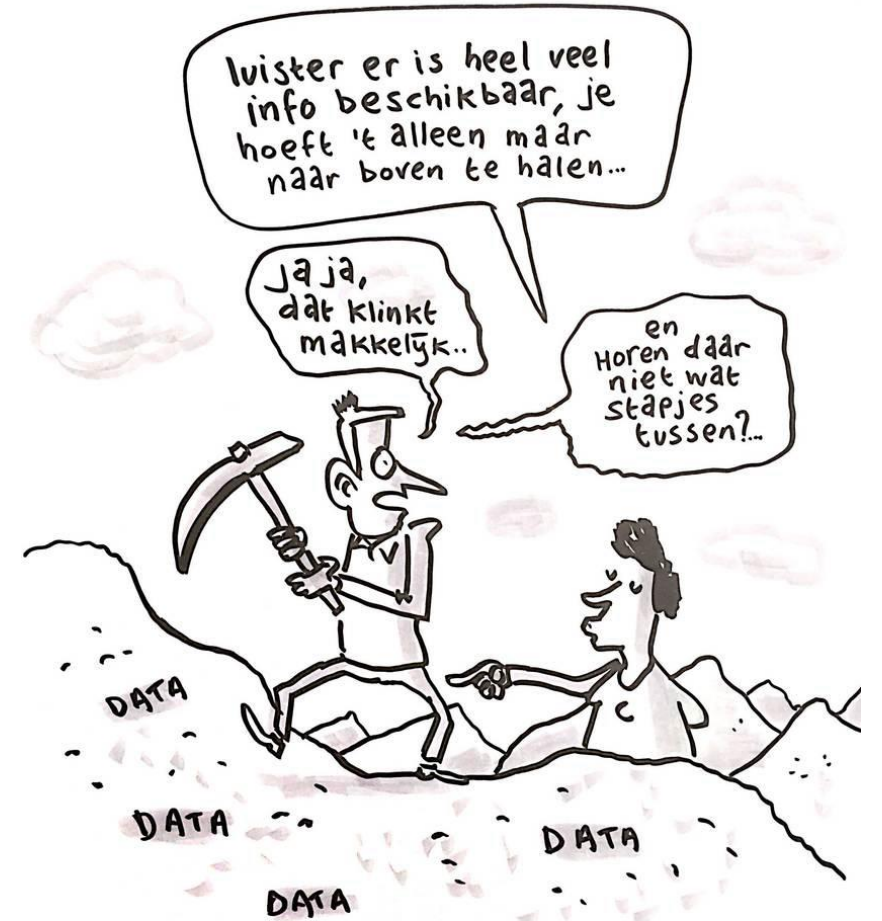 luister er is heel veel
info beschikbaar, je
hoeft 't alleen maar
naar boven te halen...
Ja ja,
dat klinkt
makkelijk..
en
Horen daar
niet wat
stapjes
tussen?...
DATA
DATA
DATA
DATA